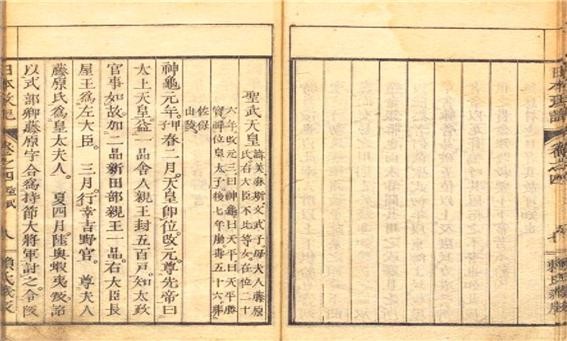 日本政記 卷之四
賴氏藏版
聖武天皇
諱美麻斯文武子母夫人藤原
氏右大臣不比等女在位二十
六年改元三曰神龜曰天平曰天平勝
寶禪位皇太子後七年崩壽五十六葬
佐保
山陵
神龜元年。甲子春二月。天皇卽位改元。尊先帝曰
太上天皇。益一品舍人親王封五百戸。知太政
官事如故。加二品新田部親王一品。右大臣長
屋王爲左大臣。三月。行幸吉野宮。尊夫人
藤原氏爲皇太夫人。夏四月。陸奧蝦夷叛。詔
以式部卿藤原宇合爲持節大將軍討之。令
日本政記 卷之四 聖武 八 賴氏藏版